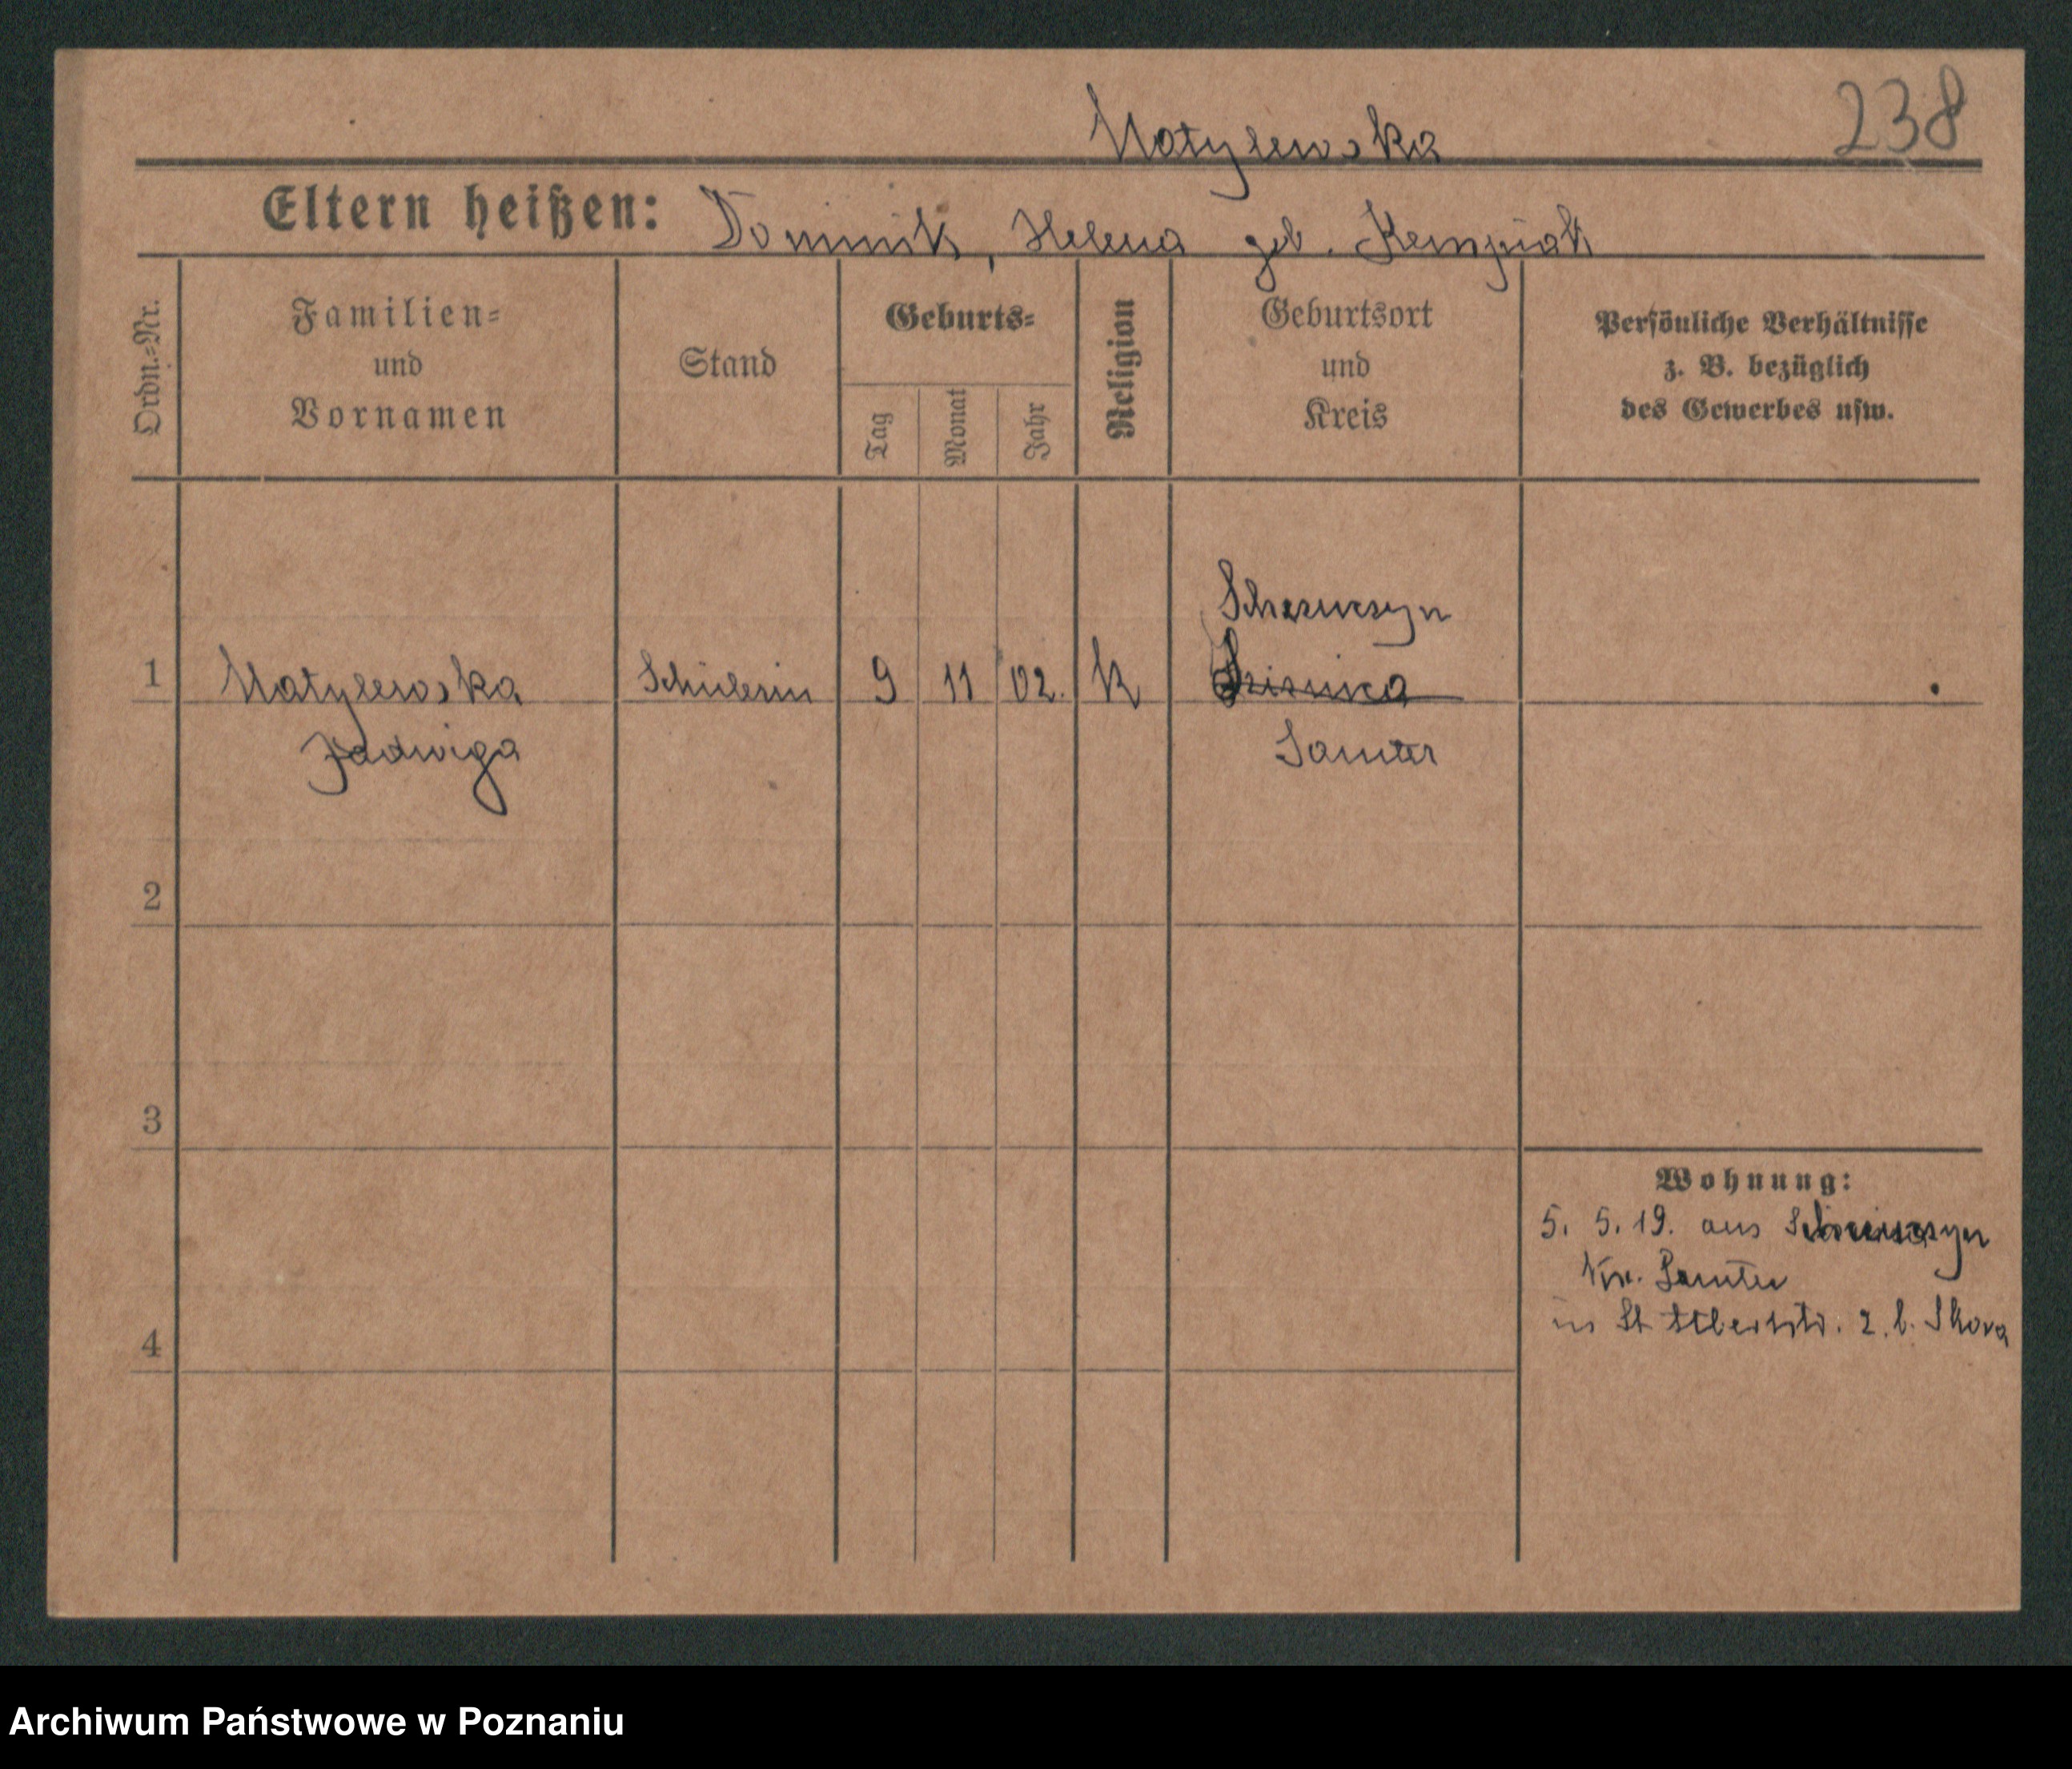 238
Matylewska
Eltern heißen: Dominik, Helena geb. Kempiak
Ordn.-Nr.
Familien- und Vornamen
Stand
Geburts-
Tag
Monat
Jahr
Religion
Geburtsort und Kreis
Persönliche Verhältnisse z. B. bezüglich des Gewerbes usw.
1 Matylewska Schülerin 9 11 02. K
Jadwiga Samter
2
3
4
Wohnung:
5. 5. 19. aus
Kr. Samter
in St 2. b. Skora
Archiwum Państwowe w Poznaniu